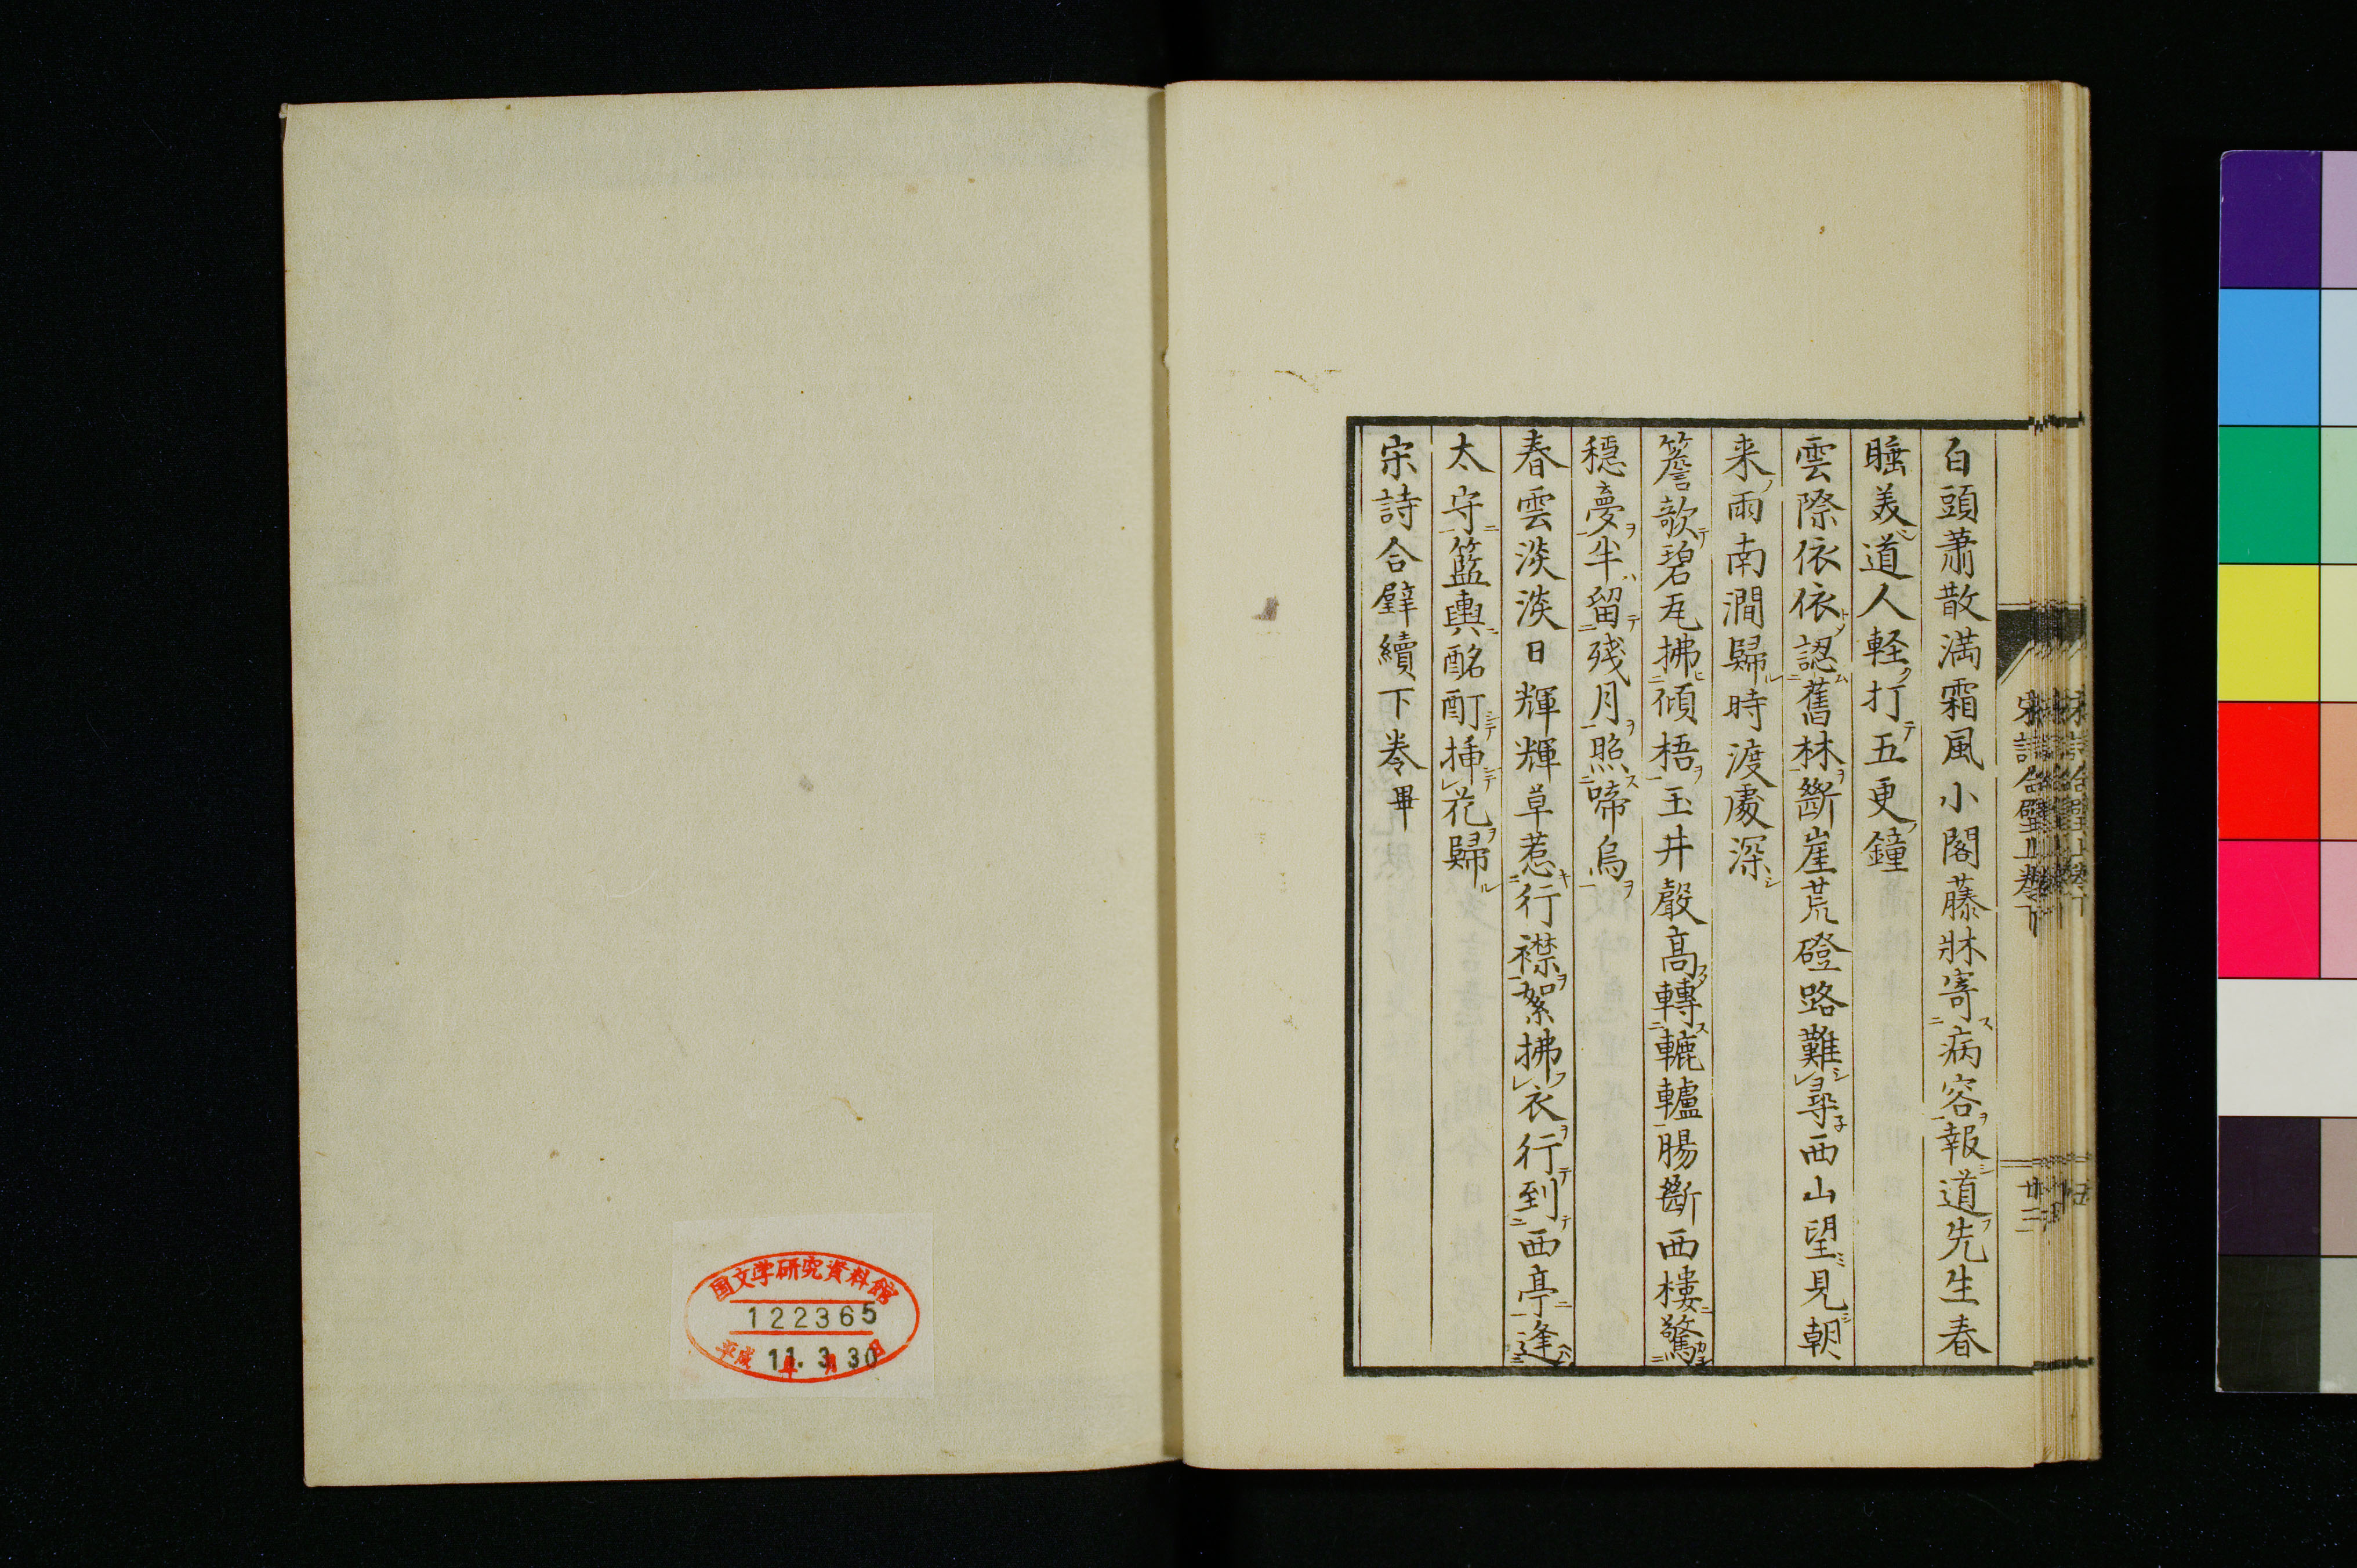 白頭蕭散滿霜風小閣藤牀寄病容報道先生春
睡美道人軽打五更鐘
雲際依依認舊林斷崖荒磴路難尋西山望見朝
来雨南澗歸時渡處深
簷欹碧瓦拂傾梧玉井聲高轉轆轤腸斷西樓驚
穩夢半留殘月照啼烏
春雲淡淡日輝輝草惹行襟絮拂衣行到西亭逢
太守籃輿酩酊揷花歸
宋詩合壁續下卷畢
国文学研究資料館
122365
平成 11年 3月 30日